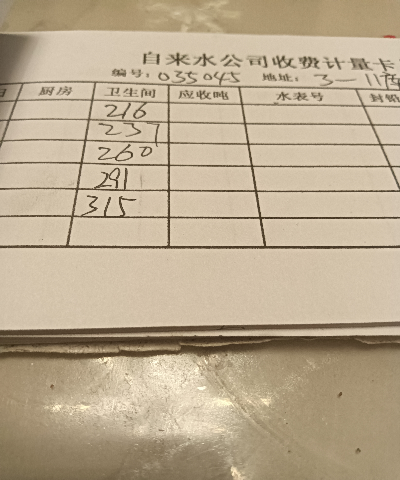 自来水公司收费计量卡
编号：035045 地址：3-11西
厨房 卫生间 应收吨 水表号 封铅
216
237
260
291
315